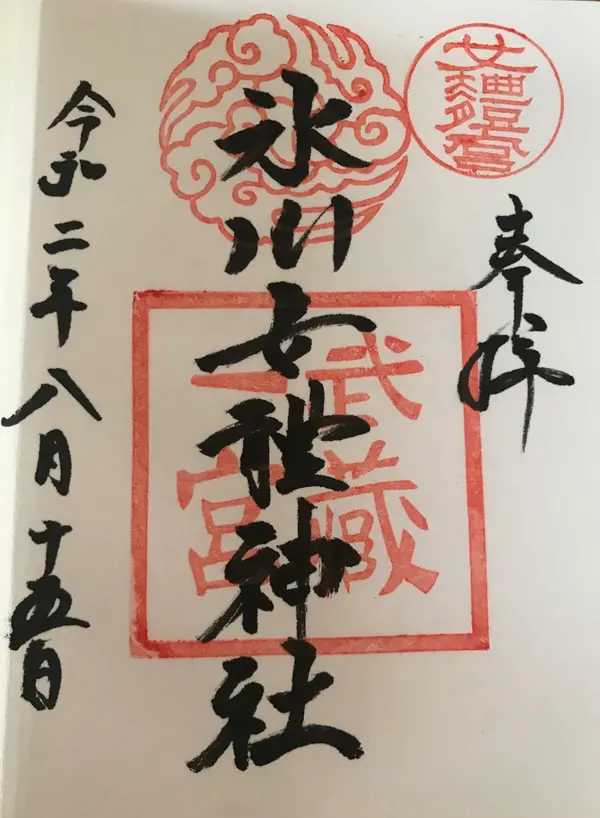 奉拝
女體宮
武藏
一宮
氷川女體神社
令和二年八月十五日